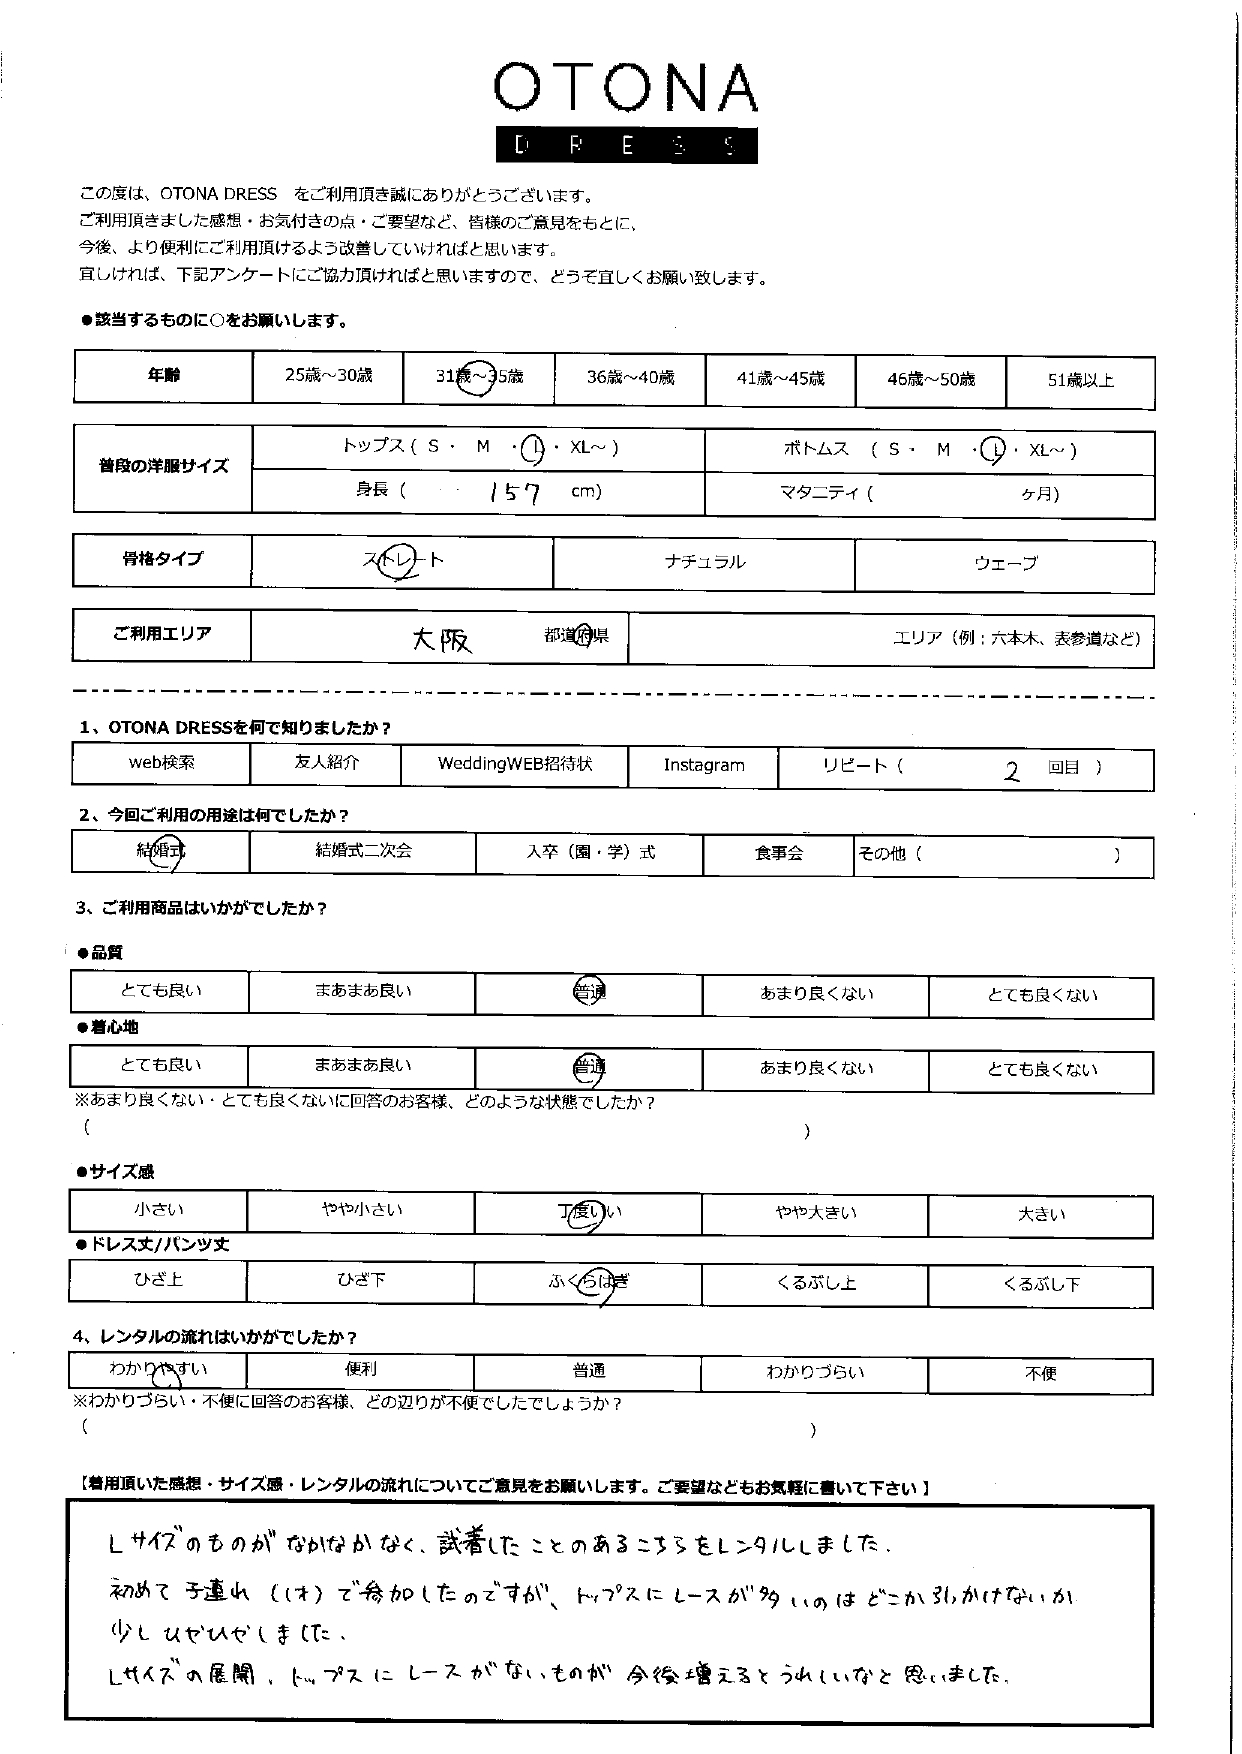 OTONA
DRESS
この度は、OTONA DRESS をご利用頂き誠にありがとうございます。
ご利用頂きました感想・お気付きの点・ご要望など、皆様のご意見をもとに、
今後、より便利にご利用頂けるよう改善していければと思います。
宜しければ、下記アンケートにご協力頂ければと思いますので、どうぞ宜しくお願い致します。
●該当するものに○をお願いします。
年齢 25歳～30歳 31歳～35歳 36歳～40歳 41歳～45歳 46歳～50歳 51歳以上
普段の洋服サイズ トップス ( S ・ M ・ L ・ XL～ ) ボトムス ( S ・ M ・ L ・ XL～ )
身長 ( 157 cm) マタニティ ( ヶ月)
骨格タイプ ストレート ナチュラル ウェーブ
ご利用エリア 大阪 都道府県 エリア（例：六本木、表参道など）
1、OTONA DRESSを何で知りましたか？
web検索 友人紹介 WeddingWEB招待状 Instagram リピート ( 2 回目 )
2、今回ご利用の用途は何でしたか？
結婚式 結婚式二次会 入卒（園・学）式 食事会 その他 ( )
3、ご利用商品はいかがでしたか？
●品質
とても良い まあまあ良い 普通 あまり良くない とても良くない
●着心地
とても良い まあまあ良い 普通 あまり良くない とても良くない
※あまり良くない・とても良くないに回答のお客様、どのような状態でしたか？
( )
●サイズ感
小さい やや小さい 丁度いい やや大きい 大きい
●ドレス丈/パンツ丈
ひざ上 ひざ下 ふくらはぎ くるぶし上 くるぶし下
4、レンタルの流れはいかがでしたか？
わかりやすい 便利 普通 わかりづらい 不便
※わかりづらい・不便に回答のお客様、どの辺りが不便でしたでしょうか？
( )
【着用頂いた感想・サイズ感・レンタルの流れについてご意見をお願いします。ご要望などもお気軽に書いて下さい】
Lサイズのものがなかなかなく、試着したことのあるこちらをレンタルしました。
初めて子連れ（1才）で参加したのですが、トップスにレースが多いのはどこか引っかけないか
少しひやひやしました。
Lサイズの展開、トップスにレースがないものが今後増えるとうれしいなと思いました。